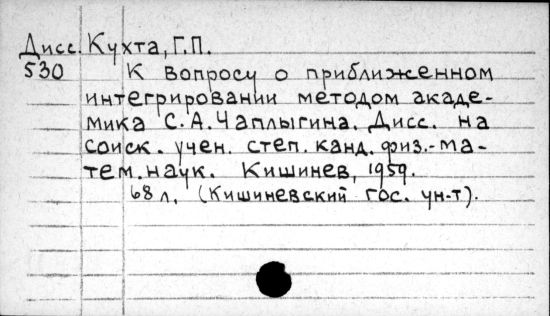 Дисс. Кухта, Г.П.
530 К вопросу о приближенном
интегрировании методом акаде-
мика С.А. Чаплыгина. Дисс. на
соиск. учен. степ. канд. физ.-ма-
тем. наук. Кишинев, 1959.
68 л. (Кишиневский гос. ун-т).